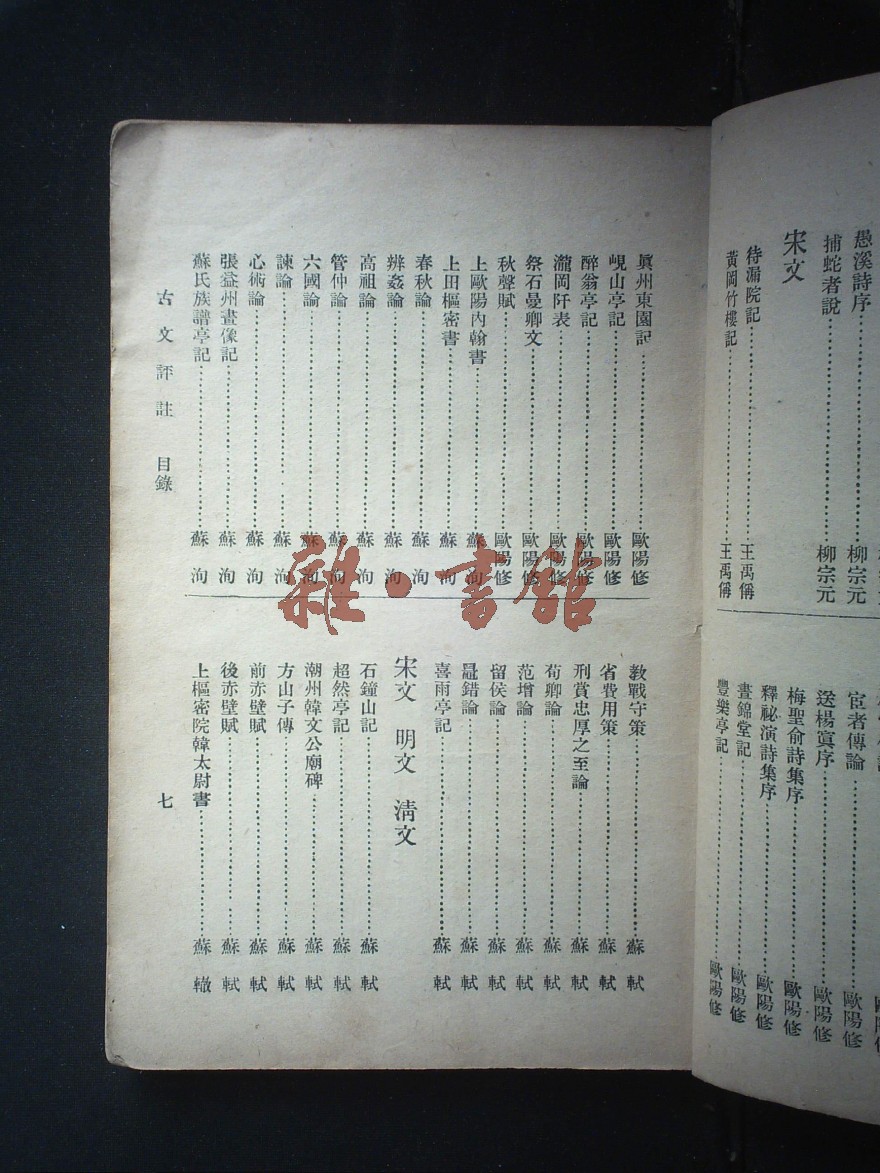 愚溪詩序……柳宗元
捕蛇者說……柳宗元
宋文
待漏院記……王禹偁
黃岡竹樓記……王禹偁
宦者傳論……歐陽修
送楊寘序……歐陽修
梅聖俞詩集序……歐陽修
釋祕演詩集序……歐陽修
晝錦堂記……歐陽修
豐樂亭記……歐陽修
眞州東園記……歐陽修
峴山亭記……歐陽修
醉翁亭記……歐陽修
瀧岡阡表……歐陽修
祭石曼卿文……歐陽修
秋聲賦……歐陽修
上歐陽內翰書……蘇洵
上田樞密書……蘇洵
春秋論……蘇洵
辨姦論……蘇洵
高祖論……蘇洵
管仲論……蘇洵
六國論……蘇洵
諫論……蘇洵
心術論……蘇洵
張益州畫像記……蘇洵
蘇氏族譜亭記……蘇洵
敎戰守策……蘇軾
省費用策……蘇軾
刑賞忠厚之至論……蘇軾
荀卿論……蘇軾
范增論……蘇軾
留侯論……蘇軾
鼂錯論……蘇軾
喜雨亭記……蘇軾
宋文 明文 淸文
石鐘山記……蘇軾
超然亭記……蘇軾
潮州韓文公廟碑……蘇軾
方山子傳……蘇軾
前赤壁賦……蘇軾
後赤壁賦……蘇軾
上樞密院韓太尉書……蘇轍
古文評註 目錄
七
雜·書館